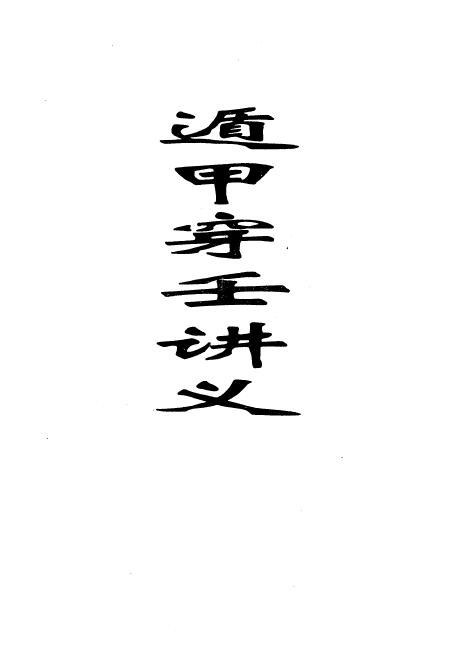 遁甲穿壬讲义